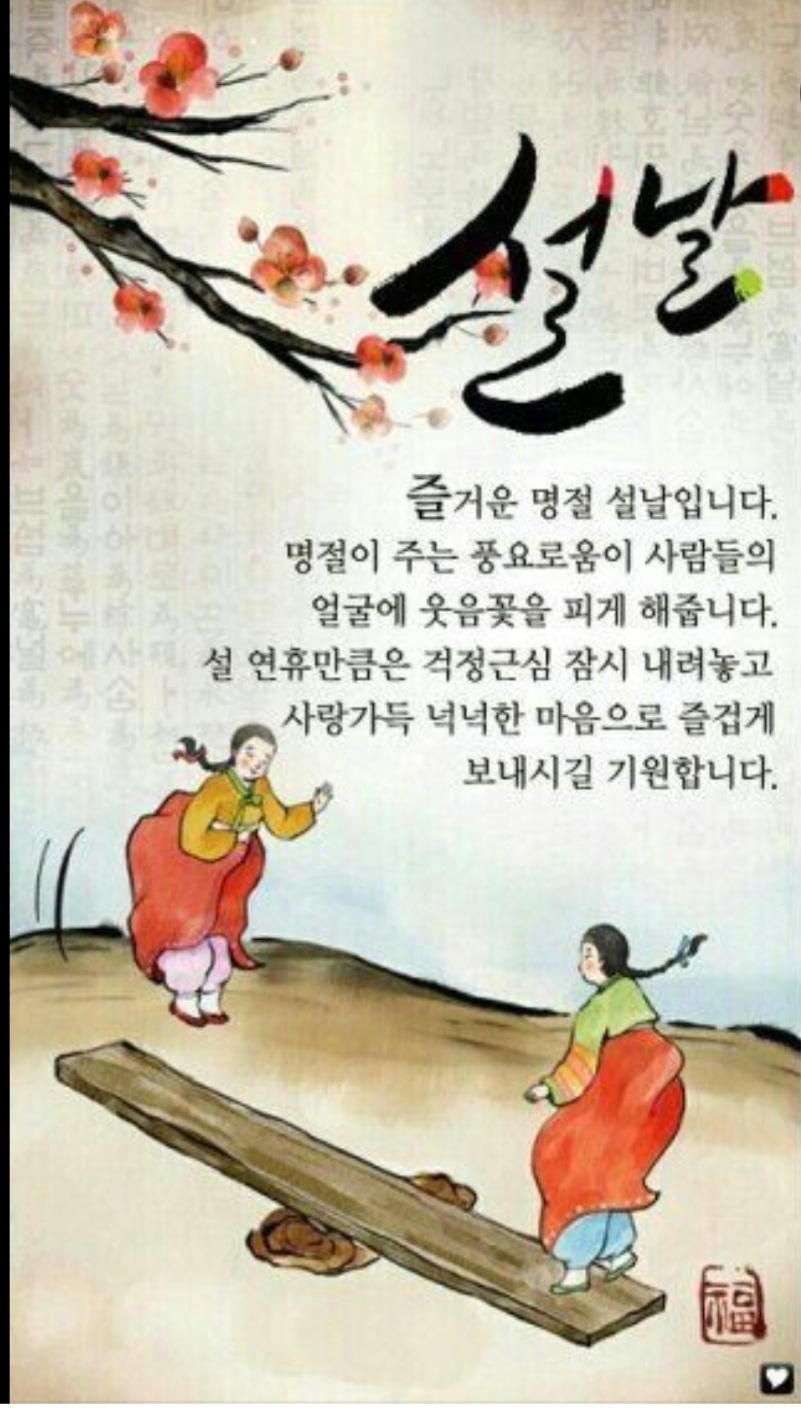 설날
즐거운 명절 설날입니다.
명절이 주는 풍요로움이 사람들의
얼굴에 웃음꽃을 피게 해줍니다.
설 연휴만큼은 걱정근심 잠시 내려놓고
사랑가득 넉넉한 마음으로 즐겁게
보내시길 기원합니다.
福